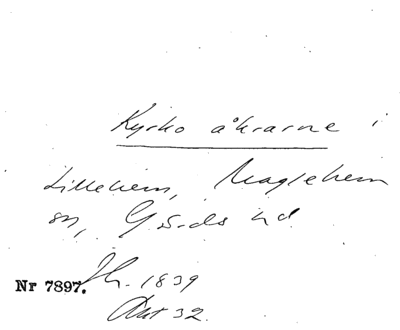 Kyrko åkrarne i
Lillehem, Maglehem
sn, Gärds hd
Nr 7897. Sk. 1839
Akt 32.